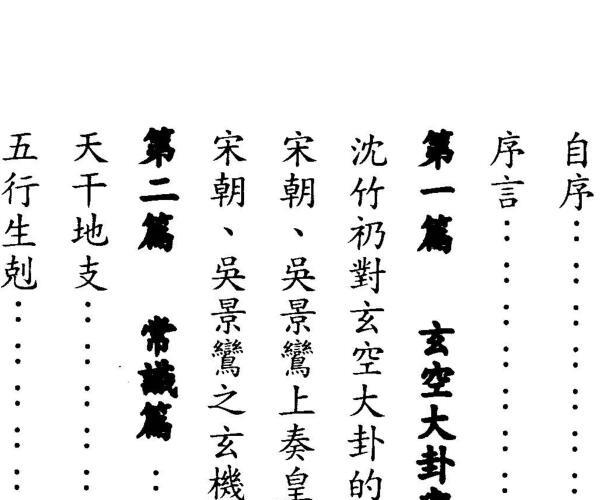 自序……
序言……
第一篇 玄空大卦
沈竹礽對玄空大卦的
宋朝、吳景鸞上奏皇
宋朝、吳景鸞之玄機
第二篇 常識篇…
天干地支……
五行生剋……